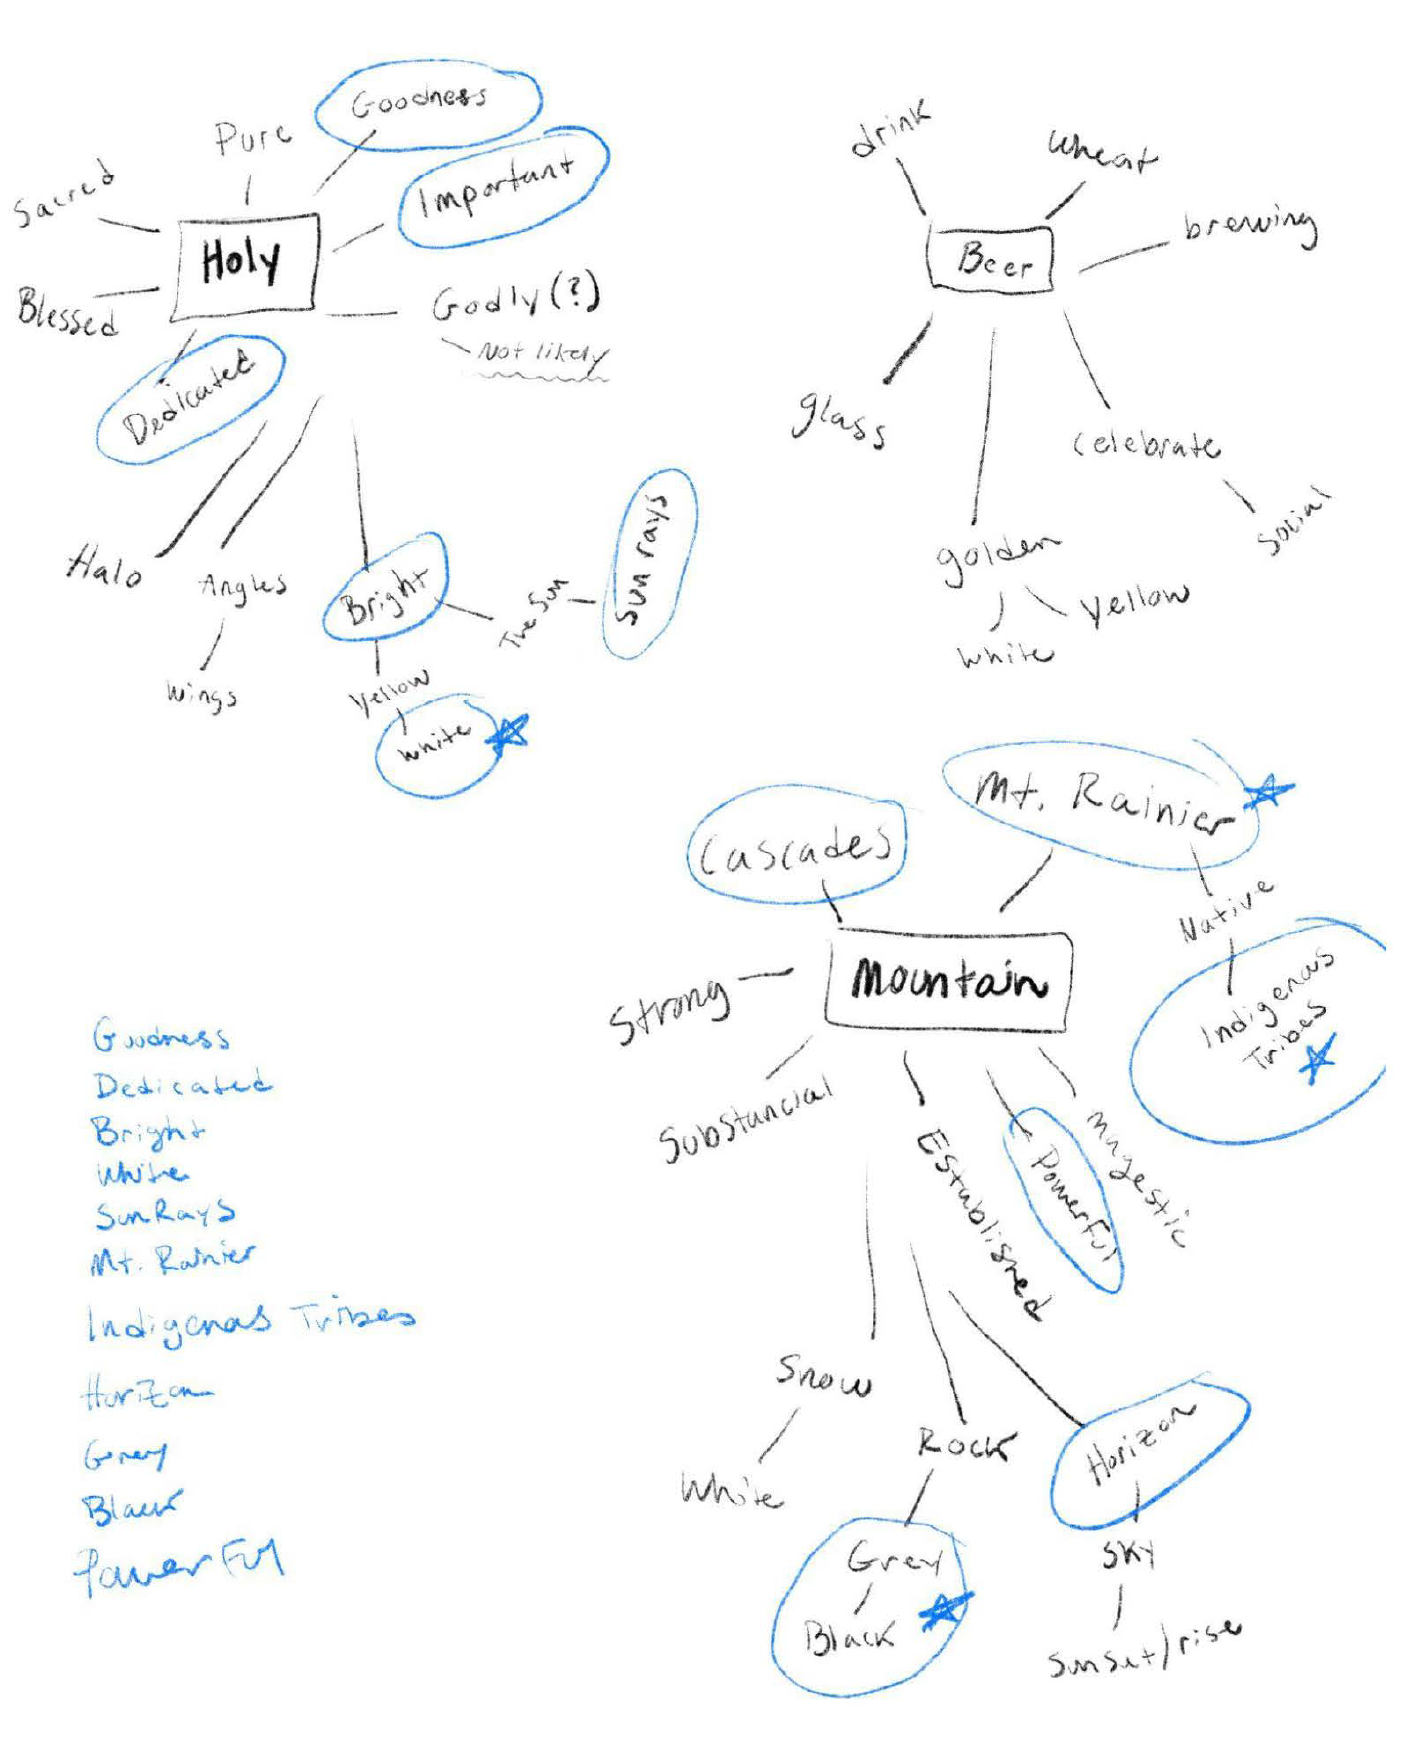 Goodness
Pure
Important
Sacred
Holy
Blessed
Godly (?)
Not likely
Dedicated
Halo
Angles
Wings
Bright
The Sun
Sun rays
Yellow
White
drink
wheat
brewing
Beer
glass
celebrate
social
golden
Yellow
white
Mt. Rainier
Cascades
Native
Indigenous
Tribes
Mountain
Strong
Substancial
Established
Powerful
Magestic
Snow
White
Rock
Grey
Black
Horizon
SKY
Sunset/rise
Goodness
Dedicated
Bright
White
SunRays
Mt. Rainier
Indigenas Tribes
Horizon
Grey
Black
Powerful